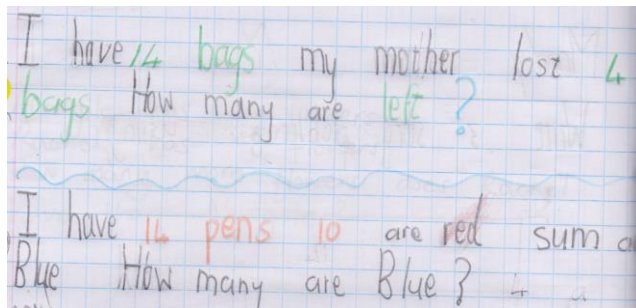 I have 14 bags my mother lost 4
bags How many are left?
I have 14 pens 10 are red sum a
Blue How many are Blue?